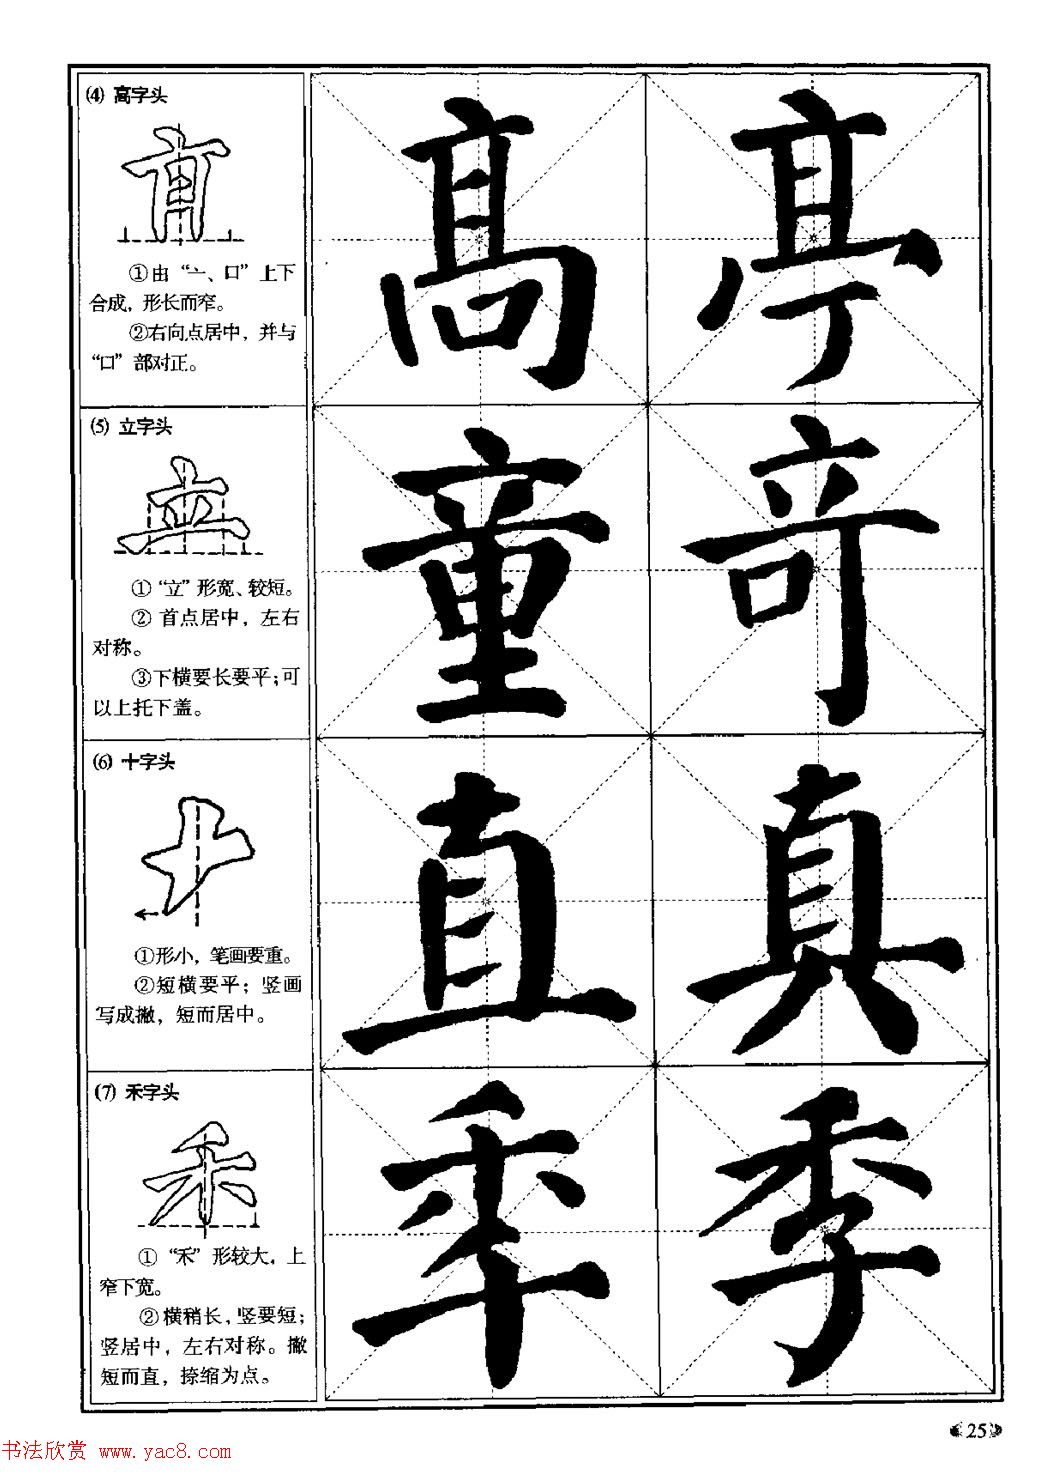 ⑷ 高字头
①由“亠、口”上下
合成，形长而窄。
②右向点居中，并与
“口”部对正。
髙
亭
⑸ 立字头
①“立”形宽、较短。
② 首点居中，左右
对称。
③下横要长要平；可
以上托下盖。
童
竒
⑹ 十字头
①形小，笔画要重。
②短横要平；竖画
写成撇，短而居中。
直
真
⑺ 禾字头
①“禾”形较大，上
窄下宽。
②横稍长，竖要短；
竖居中，左右对称。撇
短而直，捺缩为点。
秊
季
25
书法欣赏 www.yac8.com